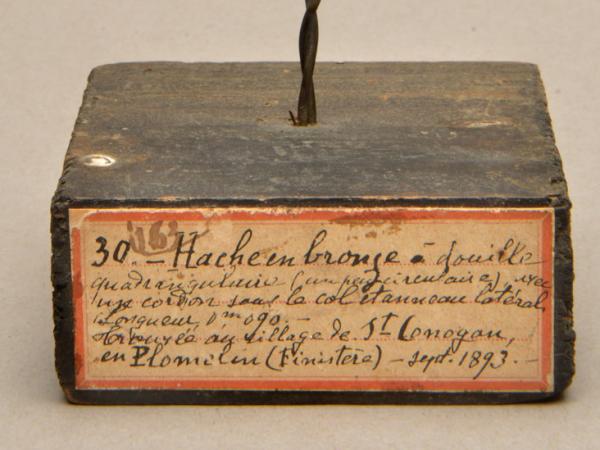 163
30. — Hache en bronze à douille
quadrangulaire (un peu circulaire) avec
un cordon sous le col et anneau latéral
Longueur 0m090. —
Trouvée au village de St Conogan,
en Plomelin (Finistère) — sept. 1893. —